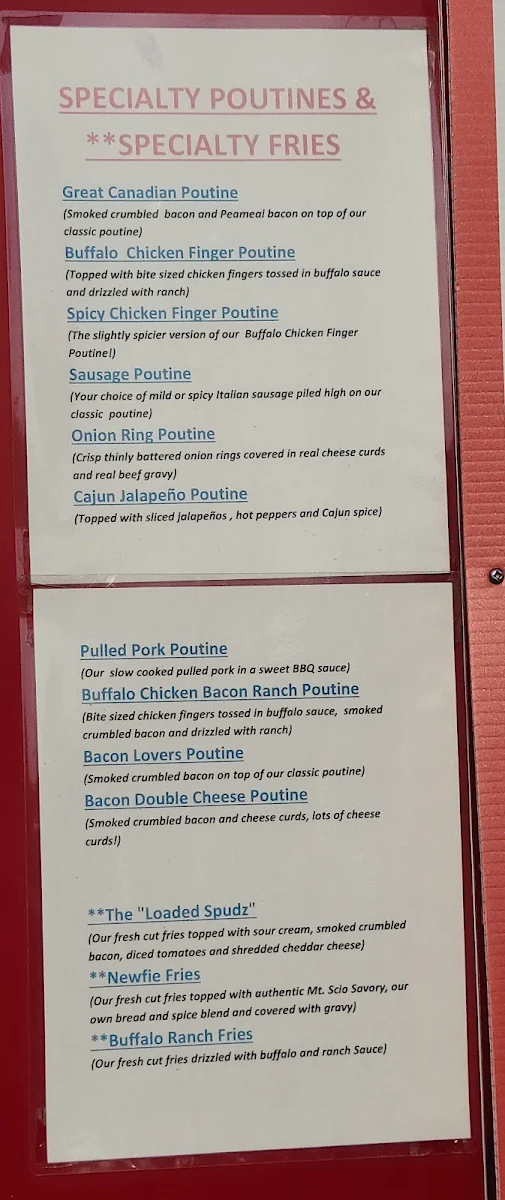 SPECIALTY POUTINES &
**SPECIALTY FRIES
Great Canadian Poutine
(Smoked crumbled bacon and Peameal bacon on top of our
classic poutine)
Buffalo Chicken Finger Poutine
(Topped with bite sized chicken fingers tossed in buffalo sauce
and drizzled with ranch)
Spicy Chicken Finger Poutine
(The slightly spicier version of our Buffalo Chicken Finger
Poutine!)
Sausage Poutine
(Your choice of mild or spicy Italian sausage piled high on our
classic poutine)
Onion Ring Poutine
(Crisp thinly battered onion rings covered in real cheese curds
and real beef gravy)
Cajun Jalapeño Poutine
(Topped with sliced jalapeños , hot peppers and Cajun spice)
Pulled Pork Poutine
(Our slow cooked pulled pork in a sweet BBQ sauce)
Buffalo Chicken Bacon Ranch Poutine
(Bite sized chicken fingers tossed in buffalo sauce, smoked
crumbled bacon and drizzled with ranch)
Bacon Lovers Poutine
(Smoked crumbled bacon on top of our classic poutine)
Bacon Double Cheese Poutine
(Smoked crumbled bacon and cheese curds, lots of cheese
curds!)
**The "Loaded Spudz"
(Our fresh cut fries topped with sour cream, smoked crumbled
bacon, diced tomatoes and shredded cheddar cheese)
**Newfie Fries
(Our fresh cut fries topped with authentic Mt. Scio Savory, our
own bread and spice blend and covered with gravy)
**Buffalo Ranch Fries
(Our fresh cut fries drizzled with buffalo and ranch Sauce)